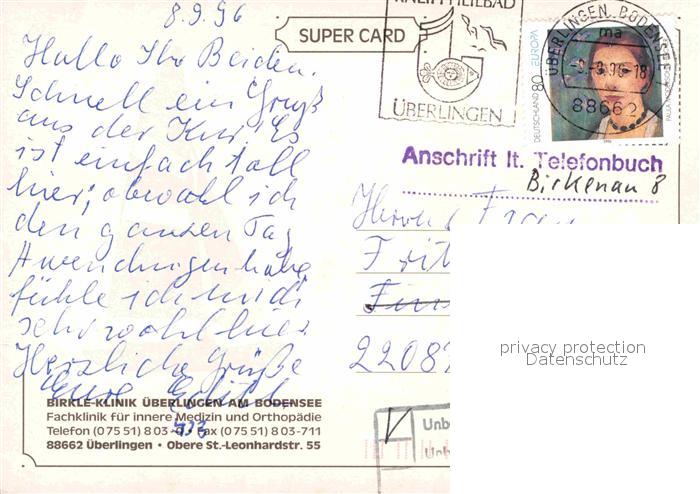 8.9.96
Hallo Ihr Beiden.
Schnell ein Gruß
aus der Kur! Es
ist einfach toll
hier; obwohl ich
den ganzen Tag
Anwendungen habe,
fühle ich mich
sehr wohl hier.
Herzliche Grüße
Eure
BIRKLE-KLINIK ÜBERLINGEN AM BODENSEE
Fachklinik für innere Medizin und Orthopädie
Telefon (0 75 51) 8 03-0 · Fax (0 75 51) 8 03-711
88662 Überlingen · Obere St.-Leonhardstr. 55
SUPER CARD
KNEIPPHEILBAD
ÜBERLINGEN
ÜBERLINGEN, BODENSEE
ma
-9.96-18
88662
DEUTSCHLAND 80 EUROPA
Anschrift lt. Telefonbuch
Birkenau 8
Herrn
Frit
2208
Unb
privacy protection
Datenschutz